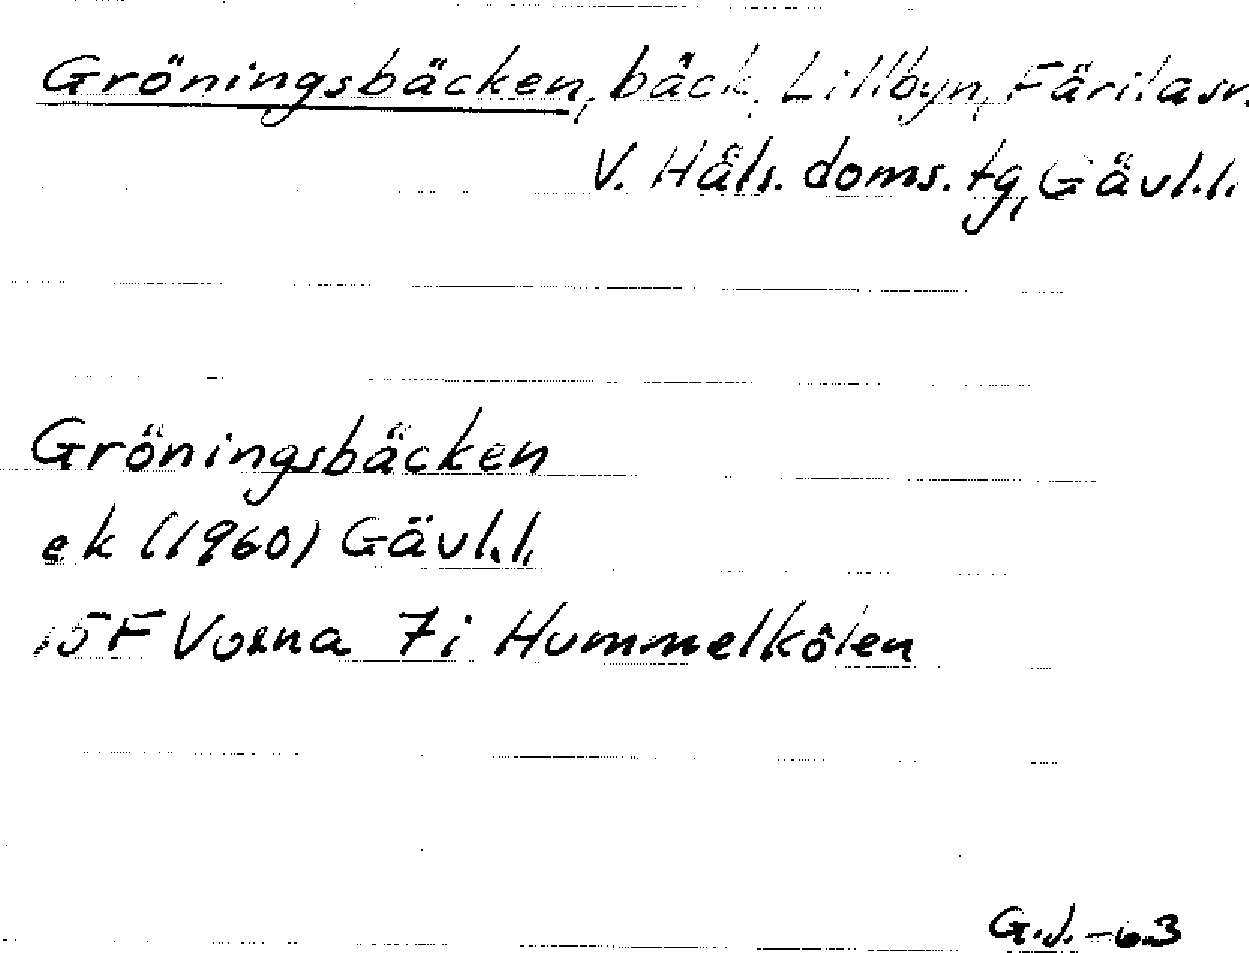 Gröningsbäcken, bäck, Lillbyn, Färila sn.
V. Häls. doms. tg, Gävl.l.
Gröningsbäcken
ek (1960) Gävl.l.
15F Voxna 7i Hummelkölen
G.J. -63